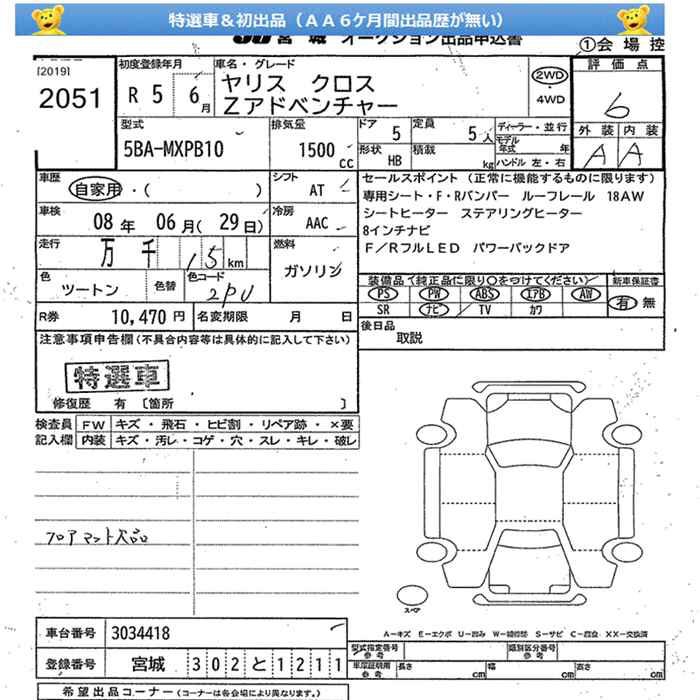 特選車&初出品(AA6ケ月間出品歴が無い)
JU宮城 オークション出品申込書
①会場控
[2019]
2051
初度登録年月
R 5 6月
車名・グレード
ヤリス クロス
Zアドベンチャー
2WD
・
4WD
評価点
6
外装 内装
A A
型式
5BA-MXPB10
排気量
1500 cc
ドア 5
定員 5人
形状 HB
積載 kg
ディーラー・並行
モデル年式 年
ハンドル 左・右
車歴
自家用・( )
シフト
AT
車検
08年 06月(29日)
冷房
AAC
走行
万 千 15km
燃料
ガソリン
色
ツートン
色替
色コード
2PU
R券 10,470円
名変期限 月 日
セールスポイント(正常に機能するものに限ります)
専用シート・F・Rバンパー ルーフレール 18AW
シートヒーター ステアリングヒーター
8インチナビ
F/RフルLED パワーバックドア
装備品(純正品に限り〇をつけてください)
新車保証書
PS PW ABS エアB AW
有 無
SR ナビ TV カワ
後日品
取説
注意事項申告欄(不具合内容等は具体的に記入して下さい)
特選車
修復歴 有 〔箇所 〕
検査員記入欄
FW キズ・飛石・ヒビ割・リペア跡・×要
内装 キズ・汚レ・コゲ・穴・スレ・キレ・破レ
フロアマット欠品
スペア
車台番号 3034418
登録番号 宮城 302と1211
A―キズ E―エクボ U―凹み W―補修跡 S―サビ C―腐食 XX―交換済
型式指定番号 参考
類別区分番号 参考
車庫証明用 参考
長さ cm 幅 cm 高さ cm
希望出品コーナー(コーナーは各会場により異なります。)